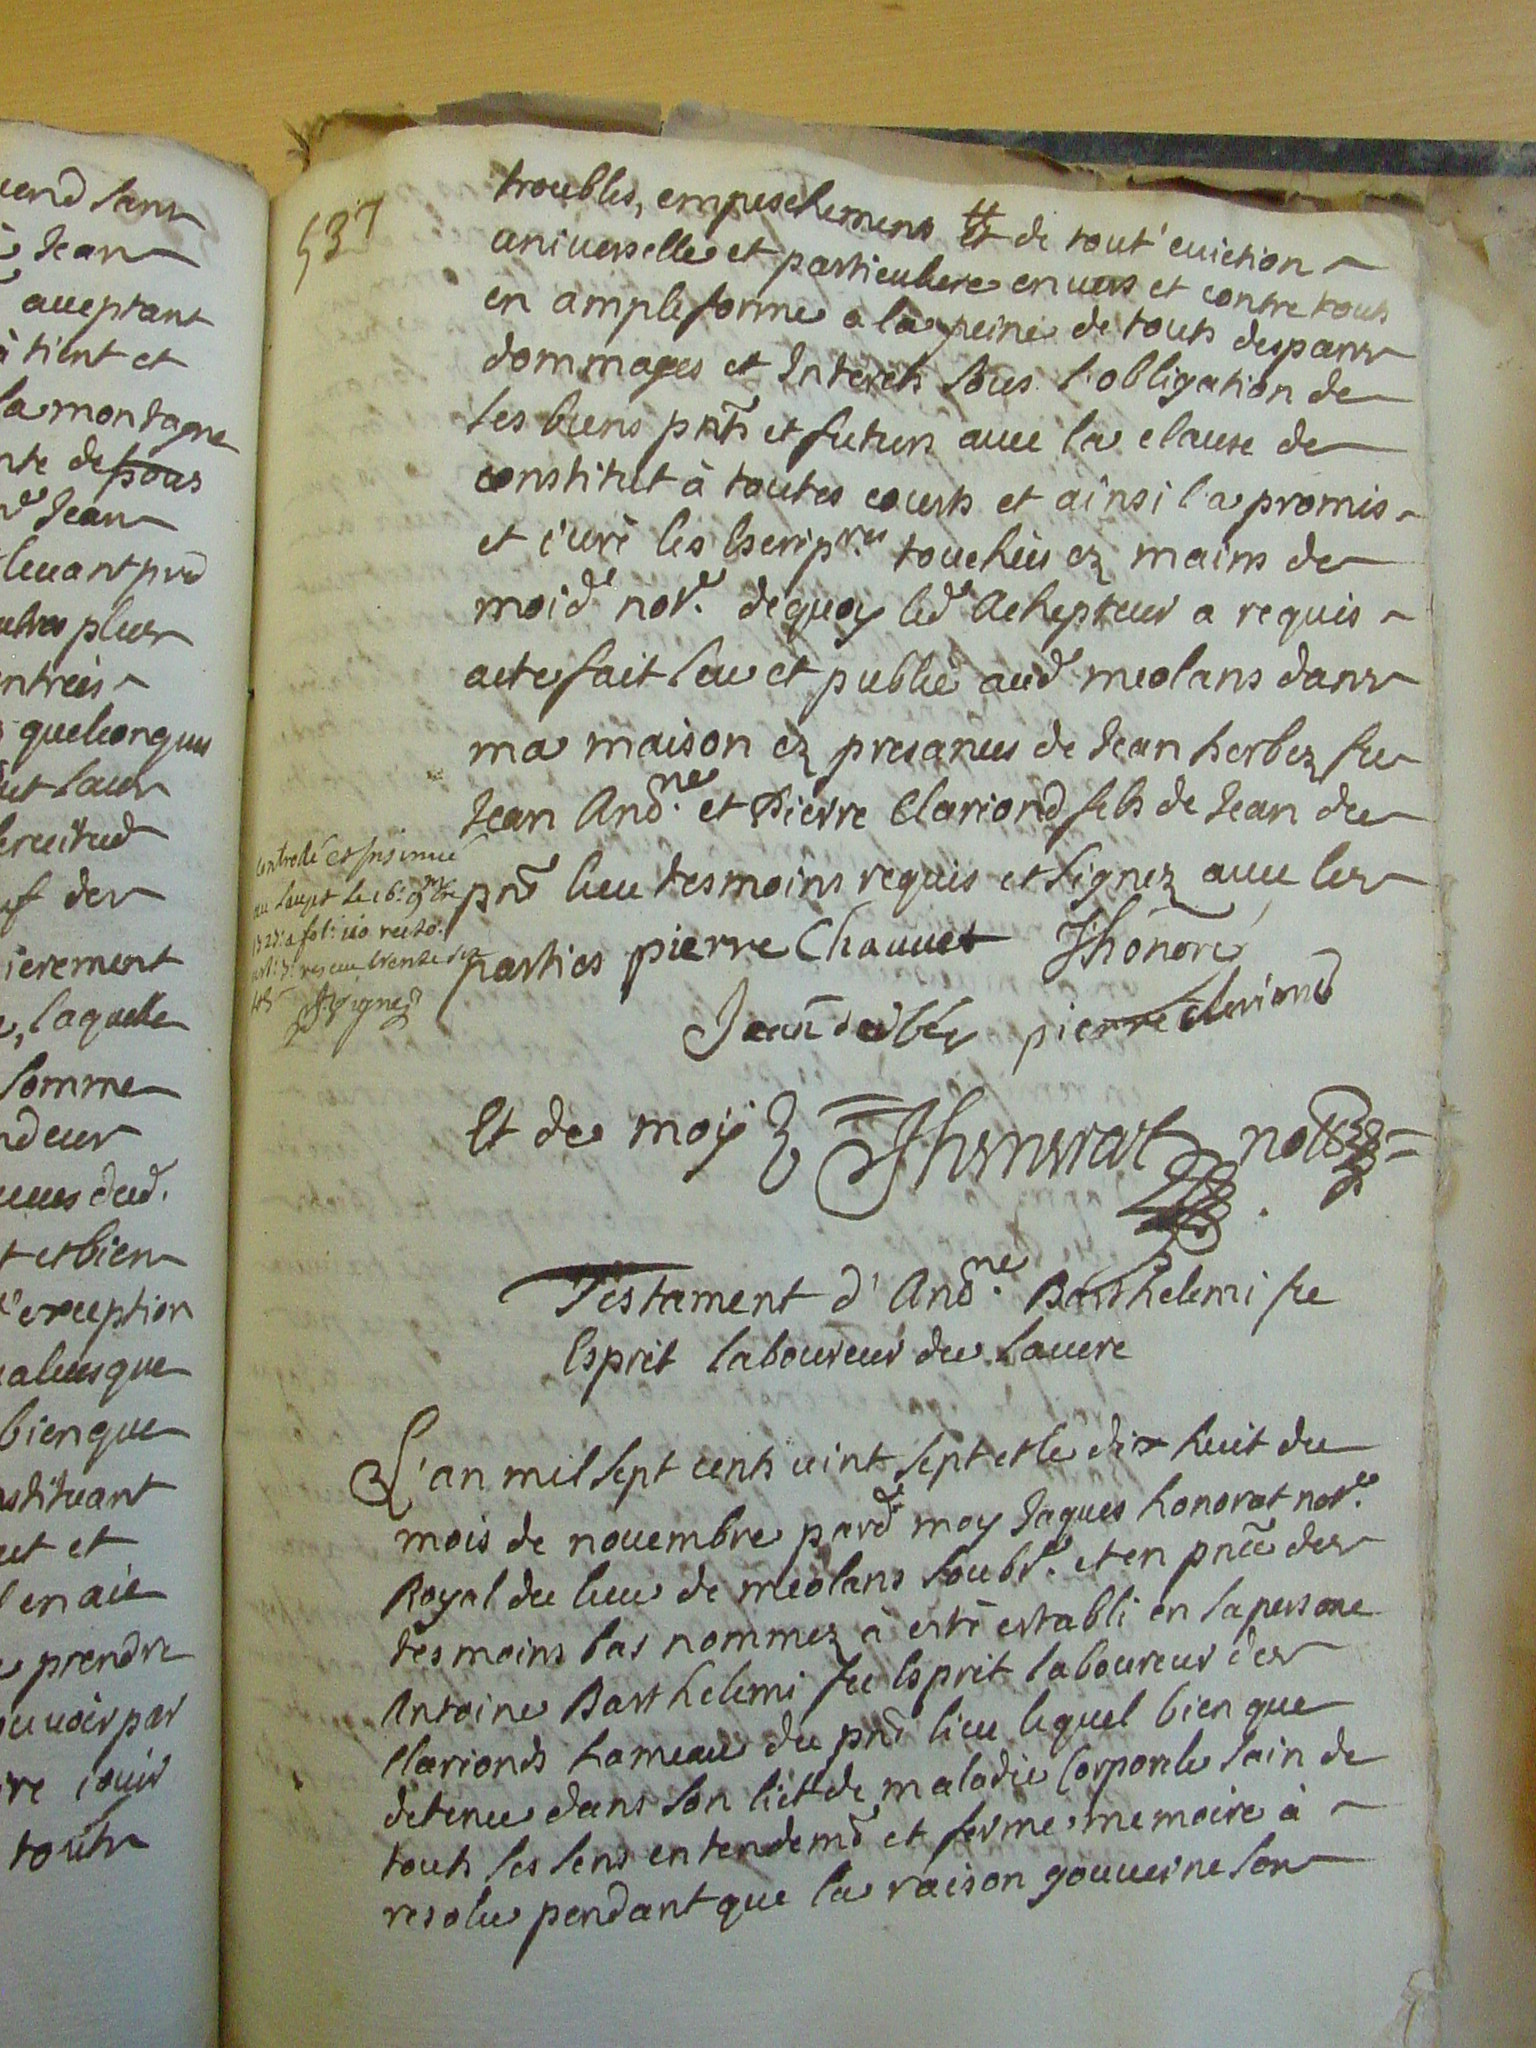 uend sans
Jean
aceptant
à tient et
la montagne
nte de pous
Jean
leuant pnd
utres plus
ntrées
quelconques
eruitud
ierement
laquelle
somme
ndeur
et bien
exception
bien que
stituant
ut et
prendre
ouuoir par
ire iouir
touts
537
troubles, empeschemens et de tout' euiction
uniuerselle et particuliere enuers et contre touts
en ample forme a la peine de touts despans
dommages et Interets sous l'obligation de
ses biens pnts et futurs auec la clause de
constitut à toutes courts et ainsi l'a promis
et iuré les Escripres touchées ez mains de
moid. nore. de quoy led. Achepteur a requis
acte fait leu et publié aud. meolans dans
ma maison ez presances de Jean herbez feu
Jean Andne. et Pierre Clariond fils de Jean du
pnt lieu tesmoins requis et signez auec les
parties pierre Chauuet J honoré
pierre clariond
Et de moy J honorat notre
controlé et Insinué
au Lauzet le 16e. 9bre
fol. 110 recto.
Testament d'Andne. Barthelemi feu
Esprit laboureur du lauere
L'an mil sept cents uint sept et le dix huit du
mois de nouembre pard. moy Jaques honorat nore.
Royal du lieu de meolans soubs. et en pnce des
tesmoins bas nommez a esté establi en sa persone
Antoine Barthelemi feu Esprit laboureur des
Clarionds hameau du pnt lieu lequel bien que
detenu dans son lict de maladie Corporele sain de
touts ses sens entendemt et ferme memoire à
resolu pendant que la raison gouuerne son